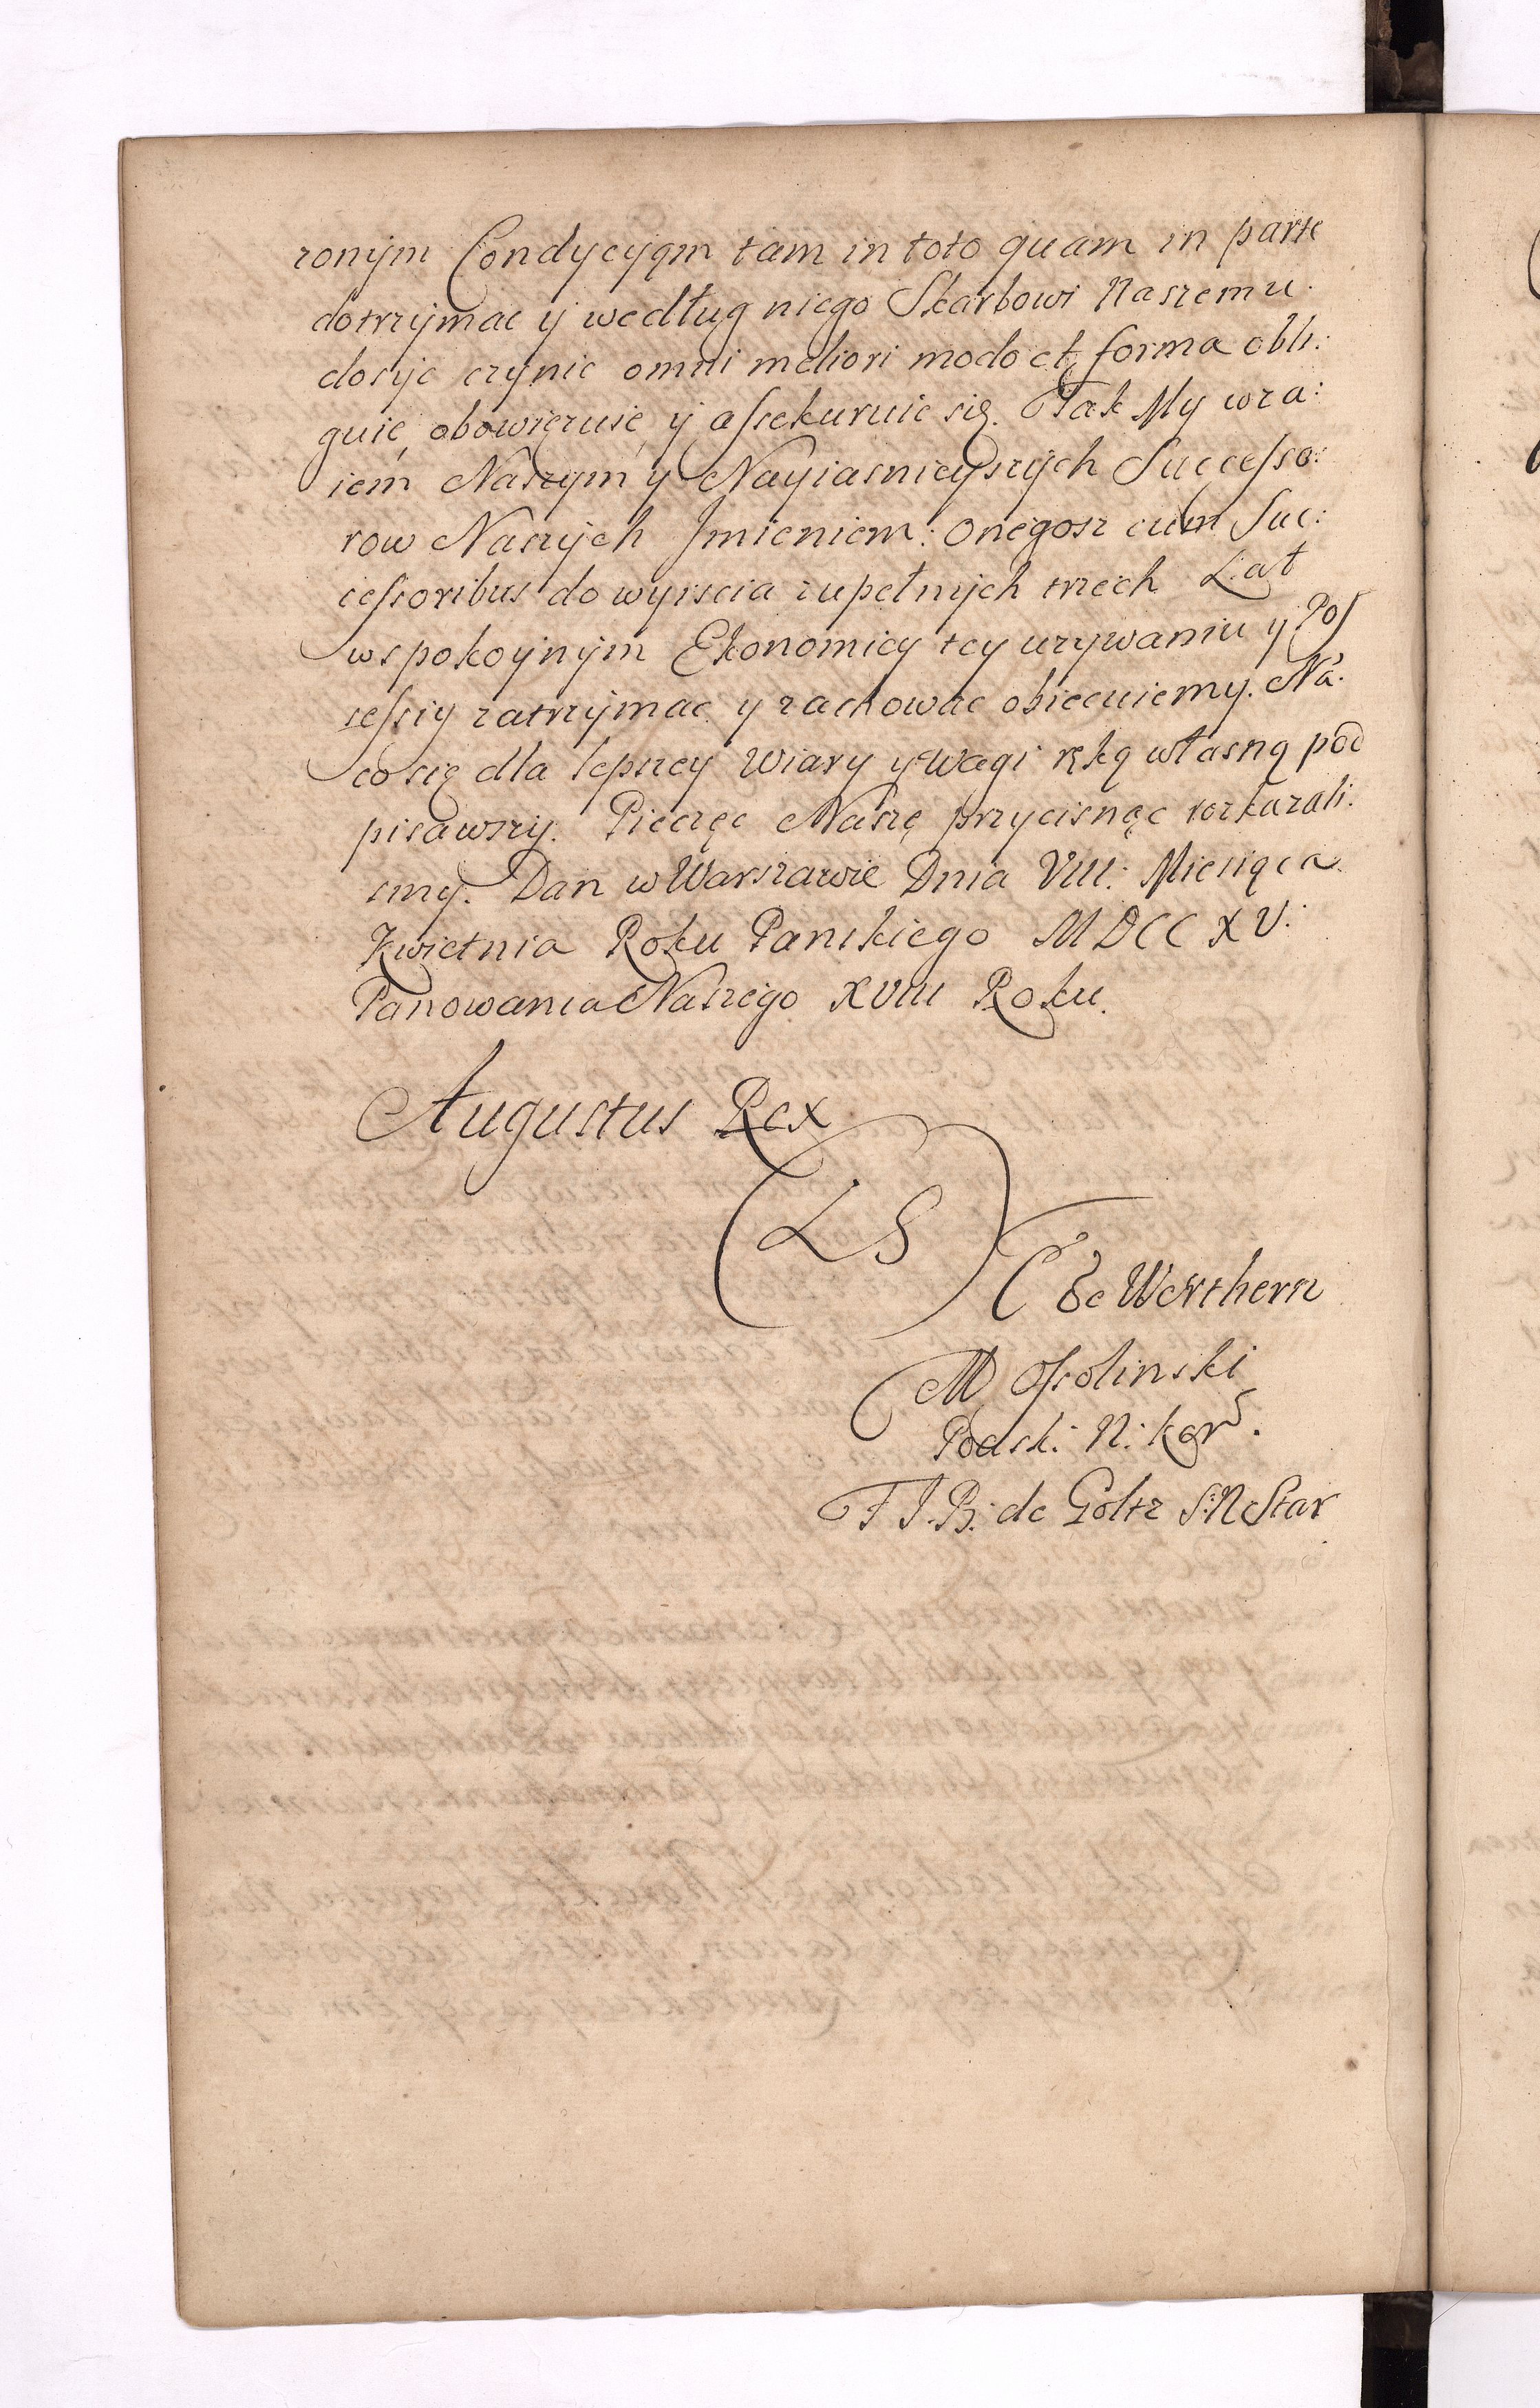 zonym Condycyom tam in toto quam in parte
dotrzymac y według niego Skarbowi Naszemu
dosyc czynic omni meliori modo et forma obli:
guie, obowięzuie y assekuruie się. Tak My wza:
iem Naszym y Nayiasnieyszych Successo:
row Naszych Jmieniem: onegosz cum Suc:
cessoribus do wyiscia zupełnych trzech Lat
w spokoynym Ekonomiey tey uzywaniu y Pos
sessiy zatrzymac y zachowac obiecuiemy. Na
co się dla lepszey Wiary y Wagi ręką własną pod
pisawszy. Pieczęc Naszę przycisnąc rozkazali
smy. Dan w Warszawie Dnia VIII: Miesiąca
Kwietnia Roku Panskiego MDCCXV:
Panowania Naszego XVIII Roku.
Augustus Rex
(LS)
C de Werthern
M Ossolinski
Podsk: N: Kor.
F J. B: de Goltz S: N Star